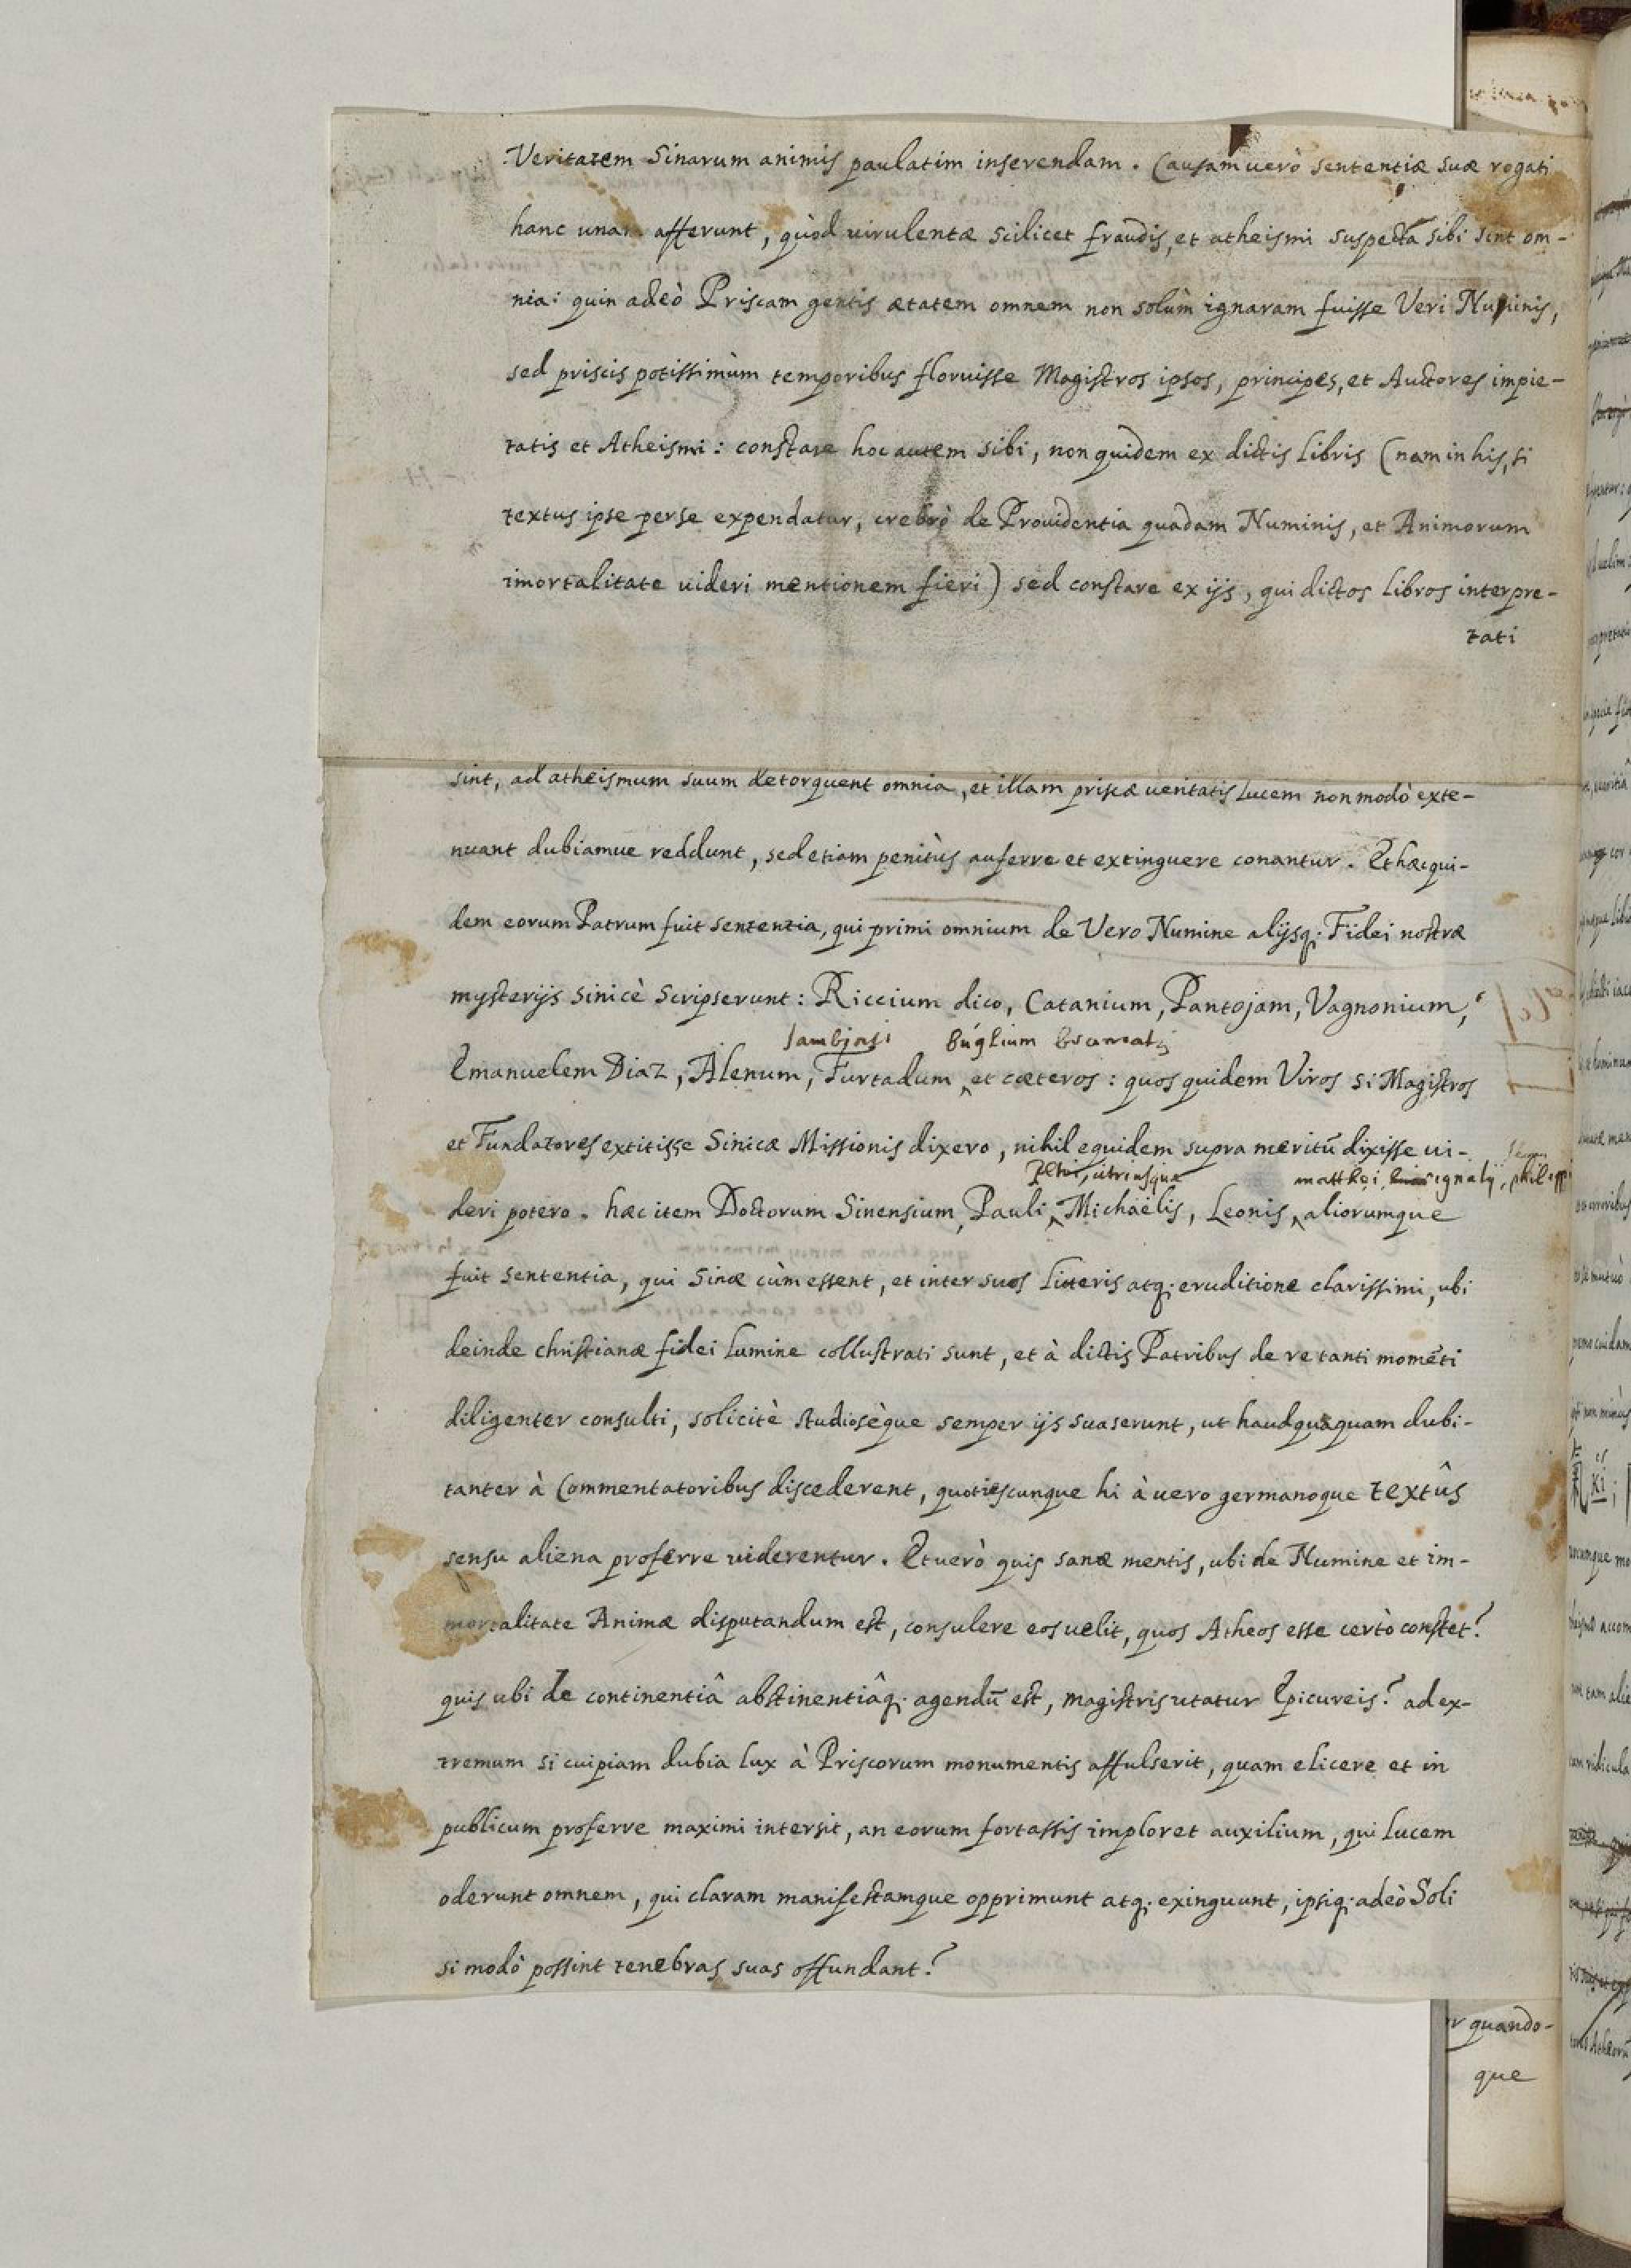 Veritatem Sinarum animis paulatim inserendam. Causam uerò sententiæ suæ rogati
hanc unam afferunt, quòd uirulentæ scilicet fraudis, et atheismi suspecta sibi sint om-
nia: quin adeò Priscam gentis ætatem omnem non solùm ignaram fuisse Veri Numinis,
sed priscis potissimùm temporibus floruisse Magistros ipsos, principes, et Auctores impie-
tatis et Atheismi: constare hoc autem sibi, non quidem ex dictis Libris (nam in his, si
textus ipse per se expendatur, crebrò de Prouidentia quadam Numinis, et Animorum
imortalitate uideri mentionem fieri) sed constare ex ijs, qui dictos Libros interpre-
tati
sint, ad atheismum suum detorquent omnia, et illam priscæ ueritatis Lucem non modò exte-
nuant dubiamue reddunt, sed etiam penitùs auferre et extinguere conantur. Et hæc qui-
dem eorum Patrum fuit sententia, qui primi omnium de Vero Numine alijsq; Fidei nostræ
mysterijs Sinicè Scripserunt: Riccium dico, Catanium, Pantojam, Vagnonium,
Buglium
Emanuelem Diaz, Alenum, Furtadum et cæteros: quos quidem Viros si Magistros
et Fundatores extitisse Sinicæ Missionis dixero, nihil equidem supra meritū dixisse ui-
utriusque matthei, ignatij, philippi
deri potero. hæc item Doctorum Sinensium, Pauli, Michaëlis, Leonis, aliorumque
fuit sententia, qui Sinæ cùm essent, et inter suos Litteris atq; eruditione clarissimi, ubi
deinde christianæ fidei Lumine collustrati sunt, et à dictis Patribus de re tanti momēti
diligenter consulti, solicitè studiosèque semper ijs suaserunt, ut haudquaquam dubi-
tanter à Commentatoribus discederent, quotiescunque hi à uero germanoque textûs
sensu aliena proferre uiderentur. Et uerò quis sanæ mentis, ubi de Numine et im-
mortalitate Animæ disputandum est, consulere eos uelit, quos Atheos esse certò constet?
quis ubi de continentiâ abstinentiâq; agendū est, magistris utatur Epicureis? ad ex-
tremum si cuipiam dubia lux à Priscorum monumentis affulserit, quam elicere et in
publicum proferre maximi intersit, an eorum fortassis imploret auxilium, qui Lucem
oderunt omnem, qui claram manifestamque opprimunt atq; exinguunt, ipsiq; adeò Soli
si modò possint tenebras suas offundant?
quando-
que